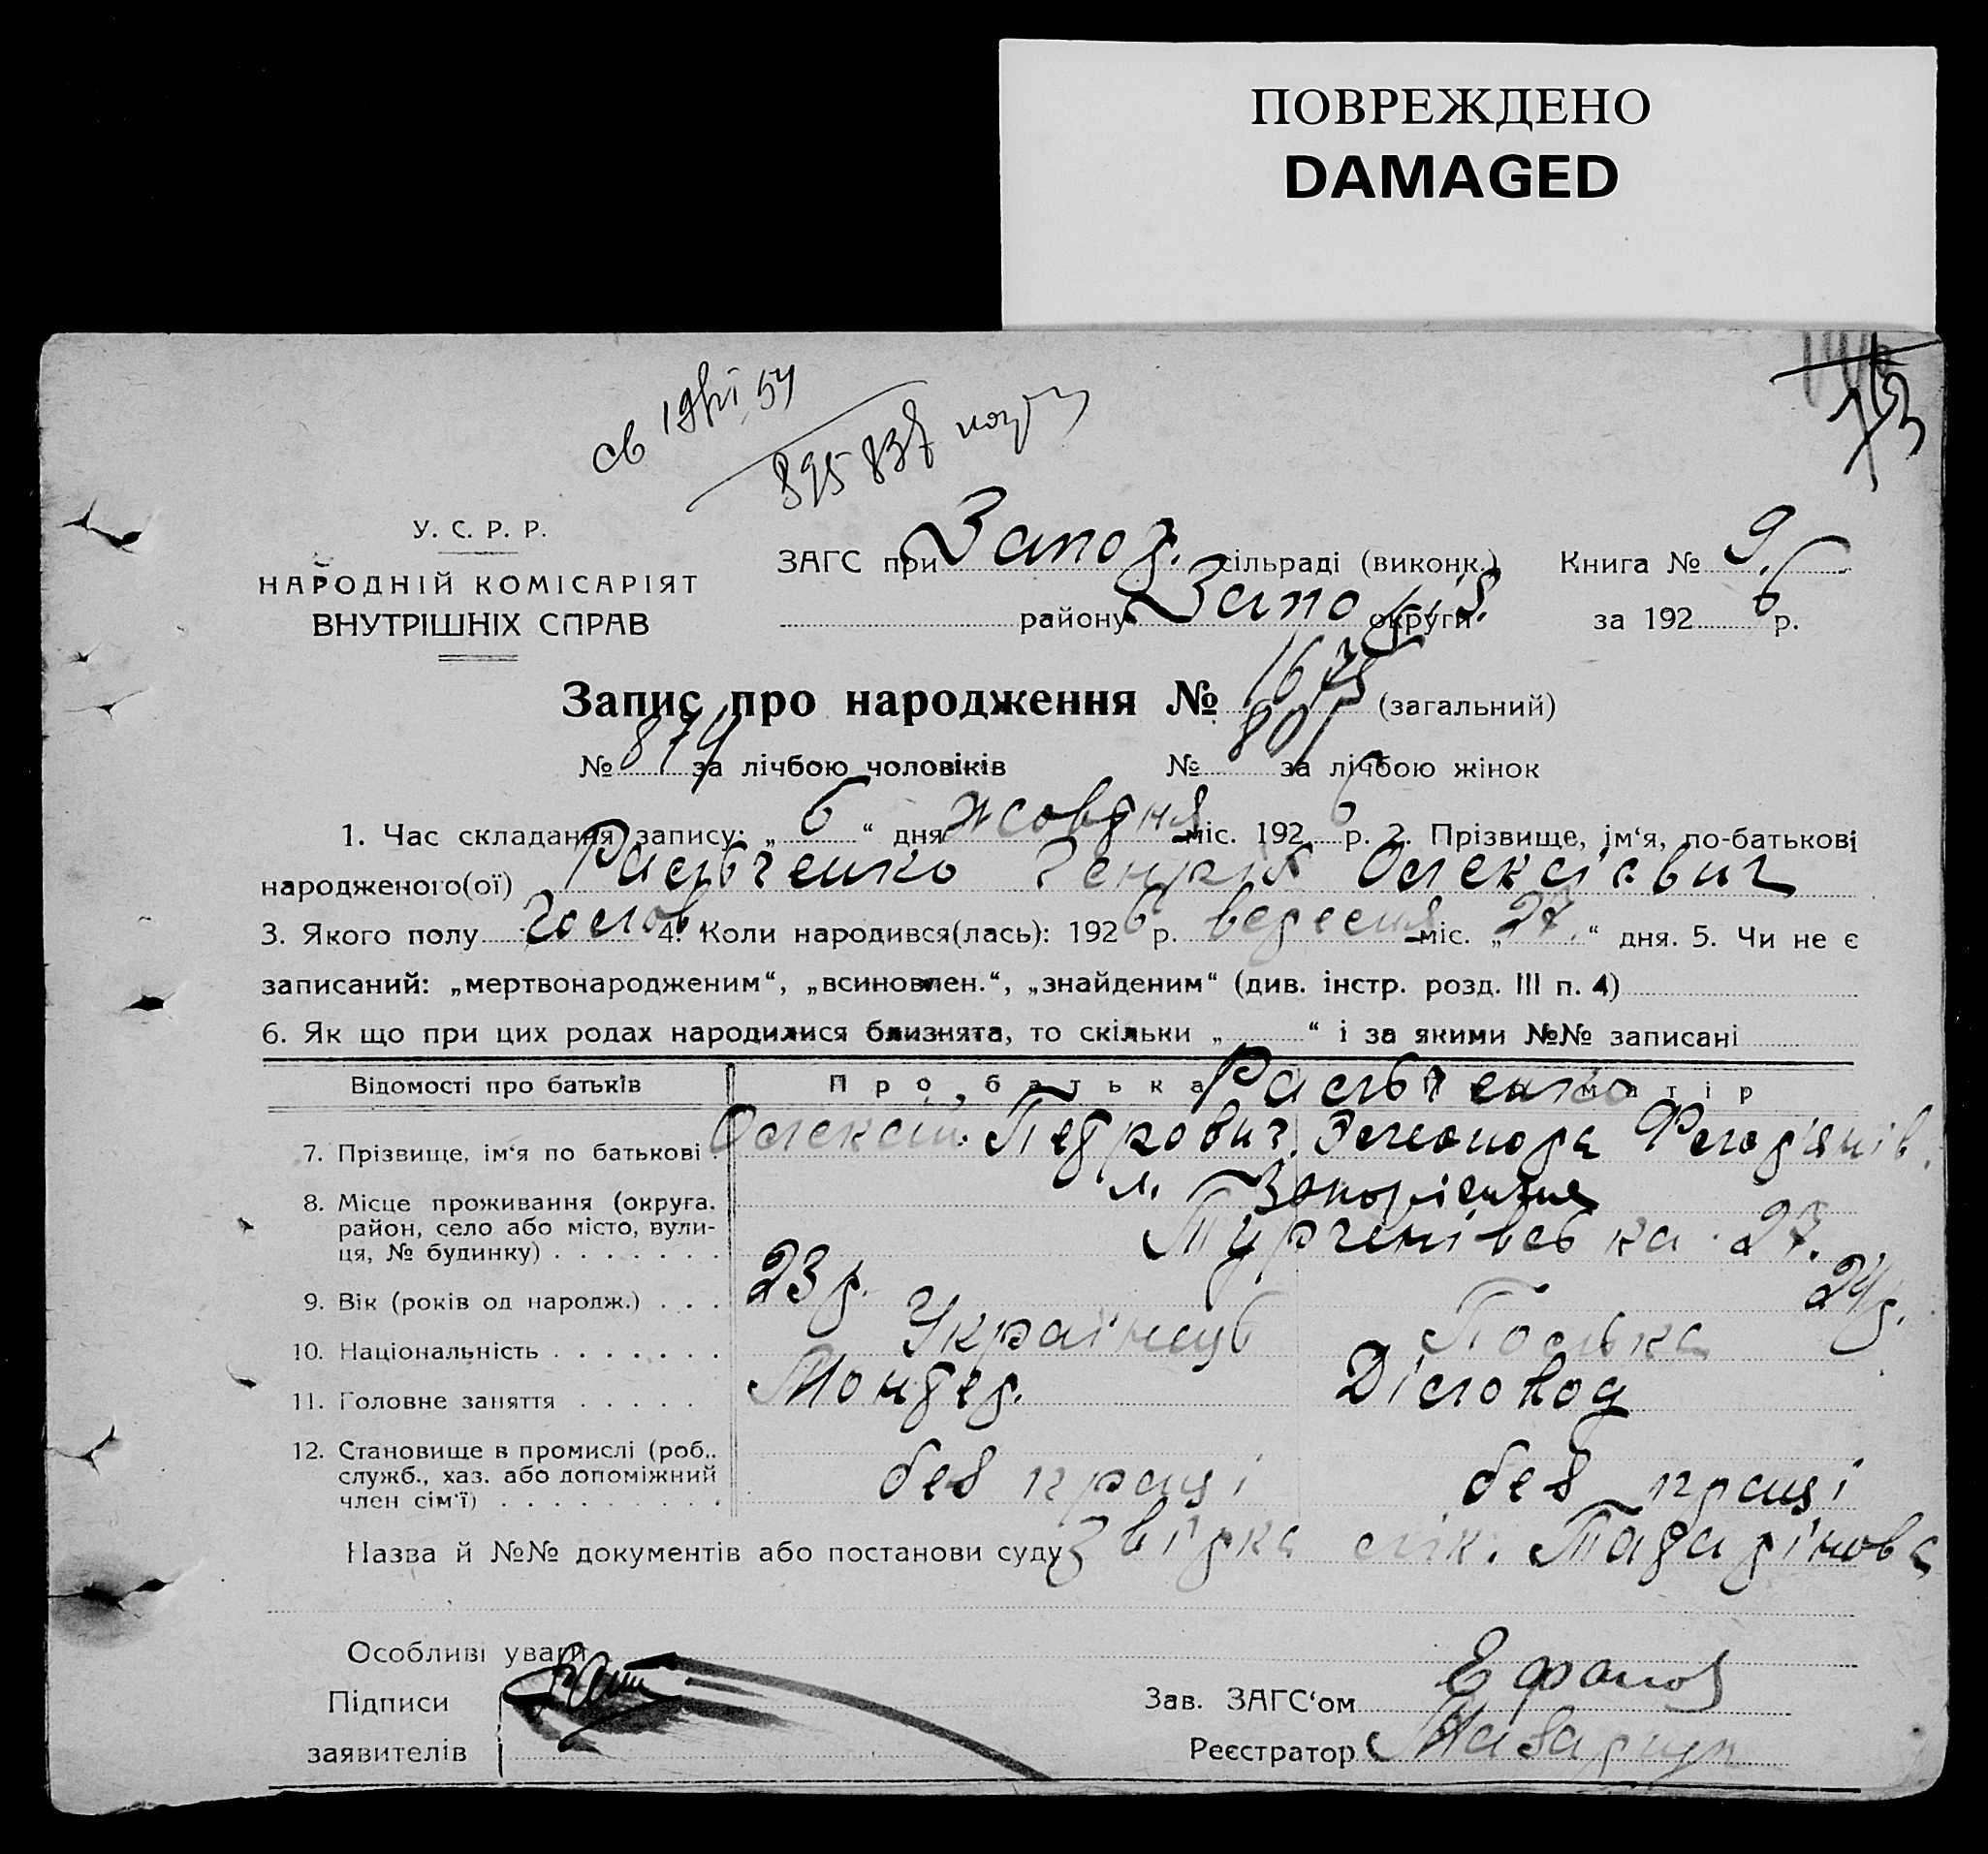 ПОВРЕЖДЕНО
DAMAGED
св 54
895 837
У. С. Р. Р.
НАРОДНІЙ КОМІСАРІЯТ
ВНУТРІШНІХ СПРАВ
ЗАГС при Запор. сільраді (виконк.) Книга № 9.
району Запоріз. округи за 1926 р.
Запис про народження № 1675 (загальний)
№ 874 за лічбою чоловіків № 801 за лічбою жінок
1. Час складання запису: „ 6 “ дня жовтня міс. 1926 р. 2. Прізвище, ім‘я, по-батькові
народженого(ої) Ральченко Генріх Олексієвич
3. Якого полу Чолов. 4. Коли народився(лась): 1926 р. вересня міс. „ 27. “ дня. 5. Чи не є
записаний: „мертвонародженим“, „всиновлен.“, „знайденим“ (див. інстр. розд. III п. 4)
6. Як що при цих родах народилися близнята, то скільки „ “ і за якими №№ записані
Відомості про батьків Про батька Про матір
Ральченко
7. Прізвище, ім‘я по батькові Олексій Петрович. Элеонора Флор'янів.
8. Місце проживання (округа, м. Запоріжжя
район, село або місто, вули-
ця, № будинку) Тургенівська 27.
9. Вік (років од народж.) 23 р. 24 р.
10. Національність Українець Полька
11. Головне заняття Монтер. Діловод
12. Становище в промислі (роб.,
служб., хаз. або допоміжний
член сім‘ї) без праці без праці
Назва й №№ документів або постанови суду Звірка лік.
Особливі уваги
Підписи
заявителів
Зав. ЗАГС‘ом
Реєстратор